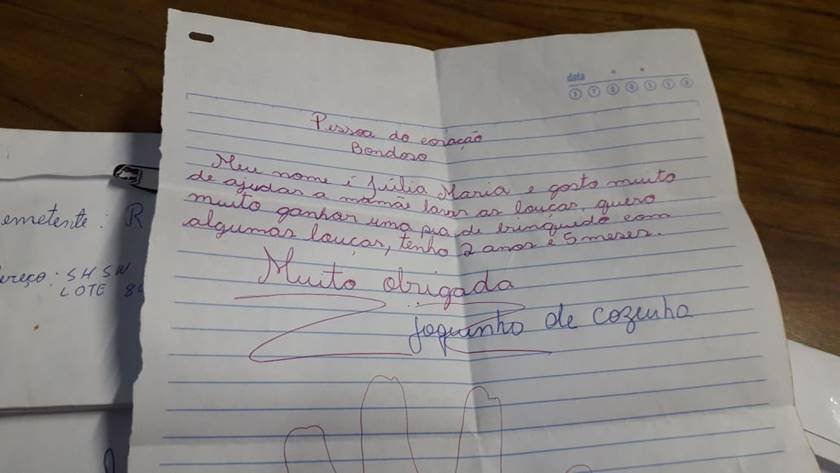 data
S T Q Q S S D
Pessoa do coração
Bondoso
Meu nome é Júlia Maria e gosto muito
de ajudar a mamãe lavar as louças, quero
muito ganhar uma pia de brinquedo com
algumas louças, tenho 2 anos e 5 meses.
Muito obrigada
foguinho de cozenha
emetente: R
ereço: SHSN
LOTE 8